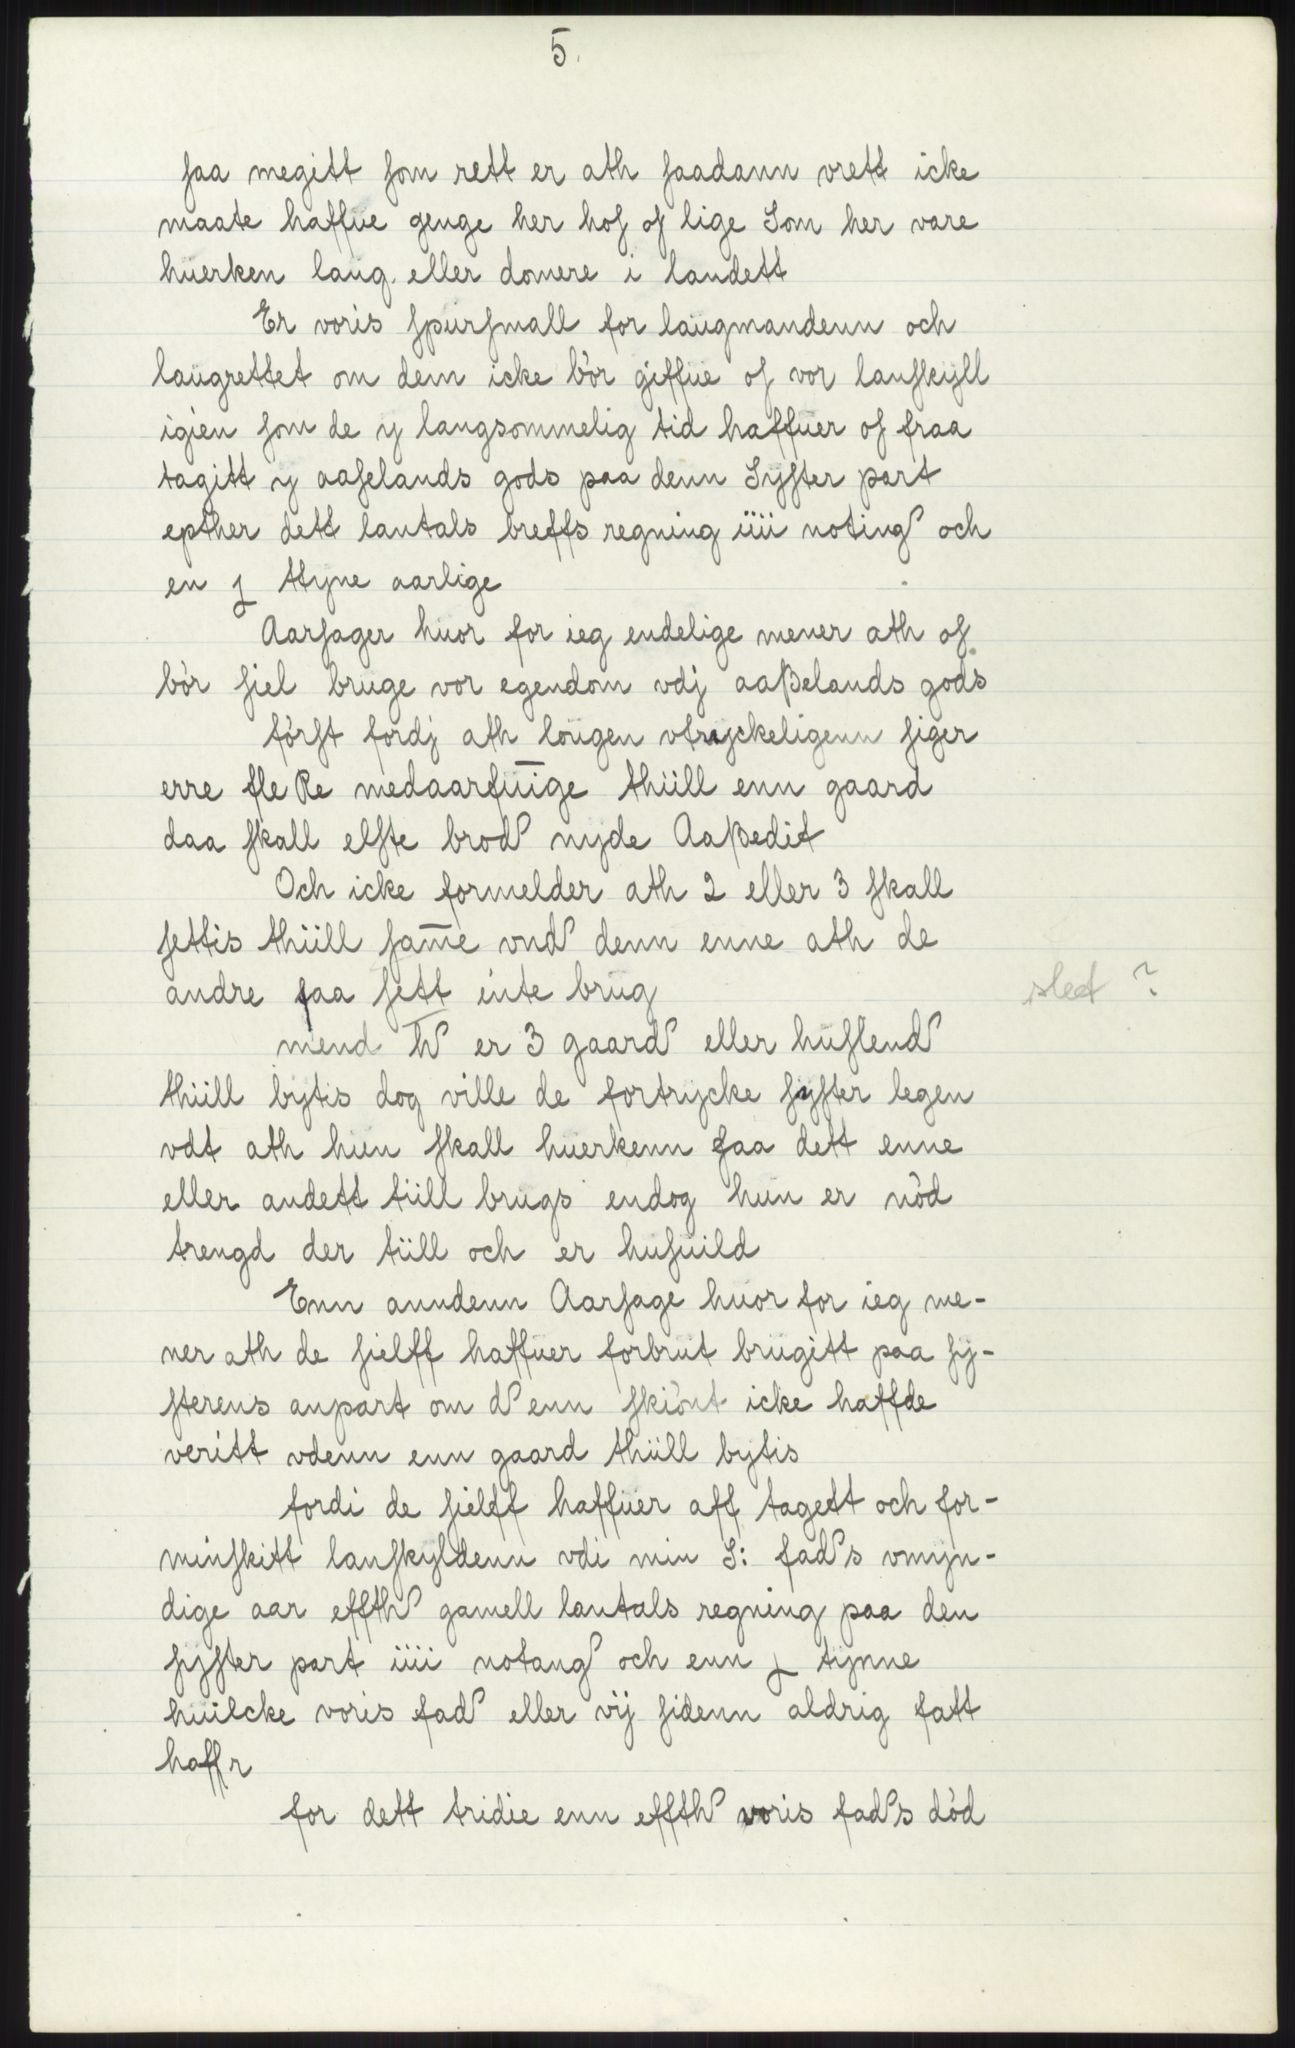 5.
saa megitt som rett er ath saadann vrett icke
maate haffue genge her hos os lige Som her vare
huerken laug. eller domere i landett
Er voris spursmall for laugmandenn och
laugrettet om dem icke bør giffue os vor lanskyll
igien som de y langsommelig tid haffuer os fraa
tagitt y aaselands gods paa denn Syster part
epther dett lantals breffs regning iiii noting och
en j ttyne aarlige
Aarsager huor for ieg endelige mener ath os
bør siel bruge vor egendom vdj aaßelands gods
først fordj ath lougen vtryckeligenn siger
erre fleRe medaarfuige thiill enn gaard
daa skall elste brod nyde Aaßedit
Och icke formelder ath 2 eller 3 skall
settis thiill same vnd denn enne ath de
andre faa sett inte brug
slet ?
mend h er 3 gaard eller huslend
thiill bytis dog ville de fortrycke syster legen
vdt ath hun skall huerkenn faa dett enne
eller andett tiill brugs endog hun er nød
trengd der tiill och er husuild
Enn anndenn Aarsage huor for ieg me-
ner ath de sielff haffuer forbrut brugitt paa sy-
sterens anpart om d enn skiønt icke haffde
veritt vdenn enn gaard thiill bytis
fordi de sielff haffuer aff tagett och for-
minskitt lanskyldenn vdi min S: fads vmyn-
dige aar effth gamell lantals regning paa den
syster part iiii notang och enn j tynne
huilcke voris fad eller vij sidenn aldrig fatt
haffr
for dett tridie enn effth voris fads død